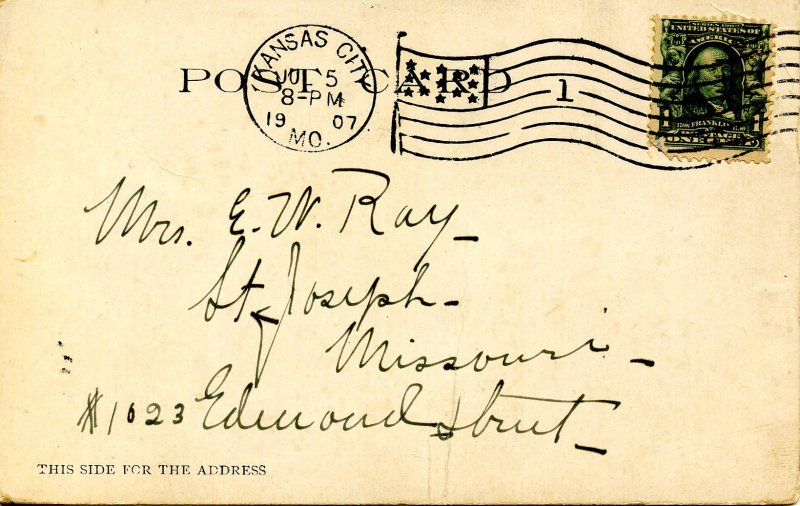 POST CARD
KANSAS CITY
JUL 5
8-PM
19 07
MO.
1
SERIES 1902
UNITED STATES OF
AMERICA
FRANKLIN
Mrs. E. W. Ray
St. Joseph
Missouri
#1023 Edmond Street
THIS SIDE FOR THE ADDRESS